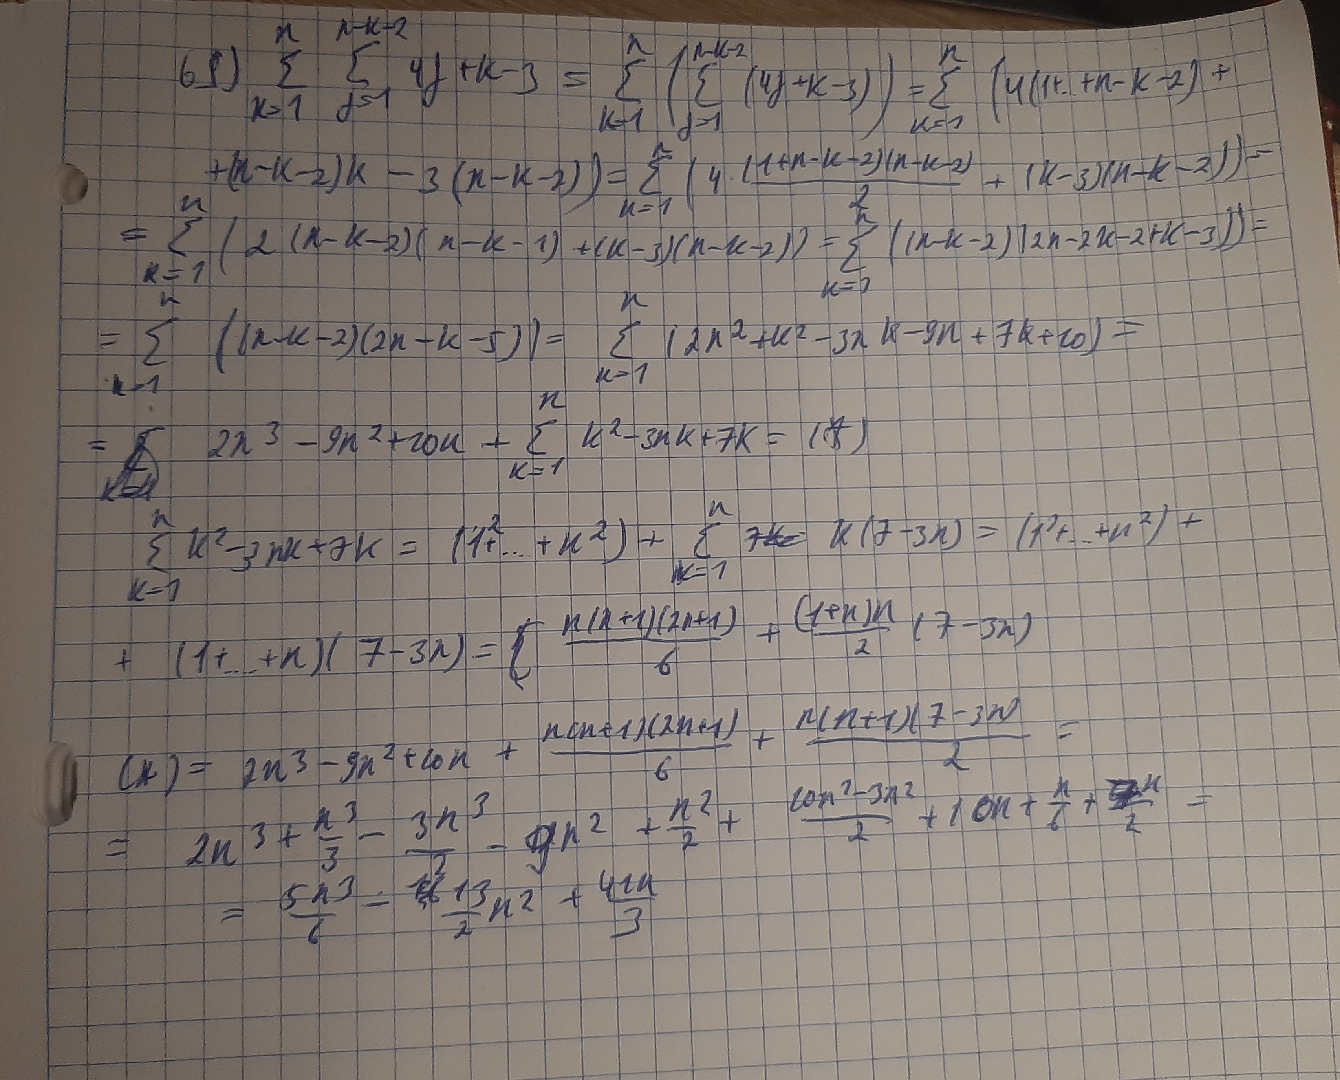 68) \sum_{k=1}^{n} \sum_{j=1}^{n-k-2} 4j+k-3 = \sum_{k=1}^{n} (\sum_{j=1}^{n-k-2} (4j+k-3)) = \sum_{k=1}^{n} (4(1+..+n-k-2) +
+(n-k-2)k - 3(n-k-2)) = \sum_{k=1}^{n} (4 \cdot \frac{(1+n-k-2)(n-k-2)}{2} + (k-3)(n-k-2)) =
= \sum_{k=1}^{n} (2(n-k-2)(n-k-1) + (k-3)(n-k-2)) = \sum_{k=1}^{n} ((n-k-2)(2n-2k-2+k-3)) =
= \sum_{k=1}^{n} ((n-k-2)(2n-k-5)) = \sum_{k=1}^{n} (2n^2+k^2-3nk-9n+7k+10) =
= 2n^3-9n^2+10n + \sum_{k=1}^{n} k^2-3nk+7k = (*)
\sum_{k=1}^{n} k^2-3nk+7k = (1^2+...+n^2) + \sum_{k=1}^{n} k(7-3n) = (1^2+..+n^2) +
+ (1+...+n)(7-3n) = \frac{n(n+1)(2n+1)}{6} + \frac{(1+n)n}{2} (7-3n)
(*) = 2n^3-9n^2+10n + \frac{n(n+1)(2n+1)}{6} + \frac{n(n+1)(7-3n)}{2} =
= 2n^3 + \frac{n^3}{3} - \frac{3n^3}{2} - 9n^2 + \frac{n^2}{2} + \frac{10n^2-3n^2}{2} + 10n + \frac{n}{6} + \frac{7n}{2} =
= \frac{5n^3}{6} - \frac{13}{2}n^2 + \frac{41n}{3}